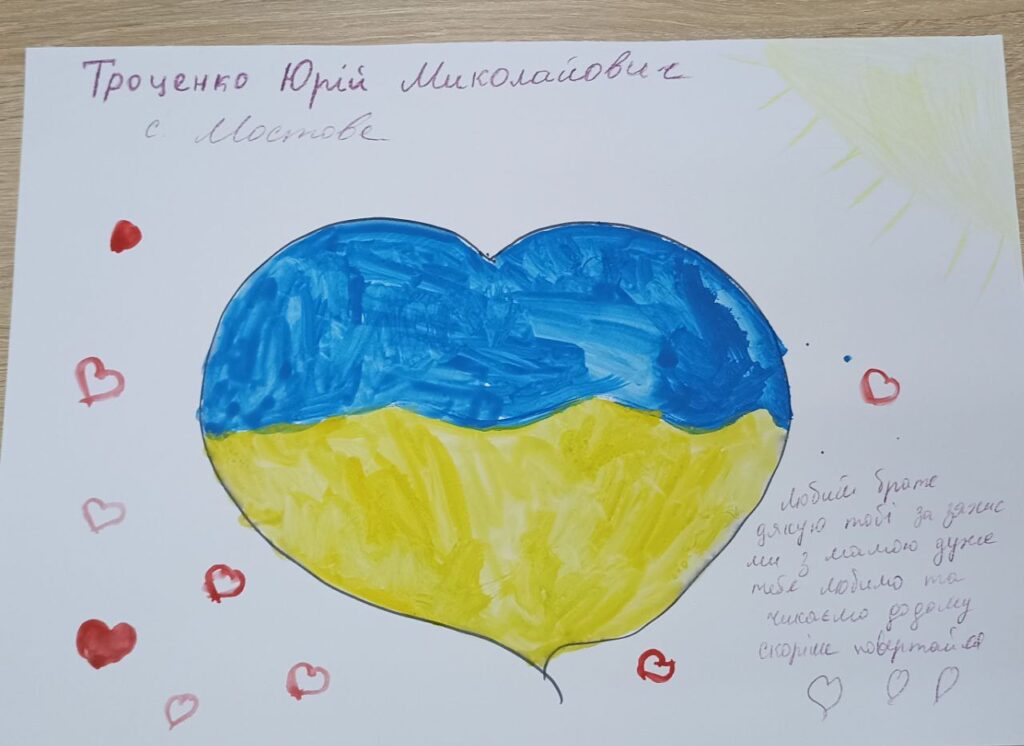 Троценко Юрій Миколайович
с. Мостове
Любий брате
дякую тобі за захис
ми з мамою дуже
тебе любимо та
чикаємо додому
скоріше повертайся